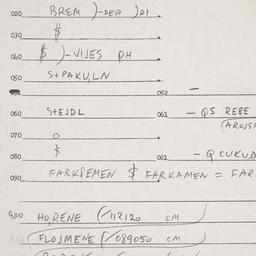 020 BREM )-DER )DI
030 $
040 $ )-VIJES PH
050 S+PAKU,LN
052 —
060 S+EJDL 061 — QS REBE
(AROJSA
070 O
080 $ 081 — Q CUKUD
090 FARKSEMEN $ FARKAMEN = FAR
900 HO,RENE (/112120 CM
FLOJMENE (/089050 CM